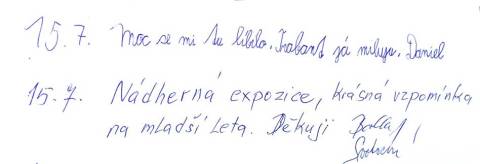 15.7. Moc se mi tu líbilo. Trabant já miluju. Daniel
15.7. Nádherná expozice, krásná vzpomínka
na mladší léta. Děkuji